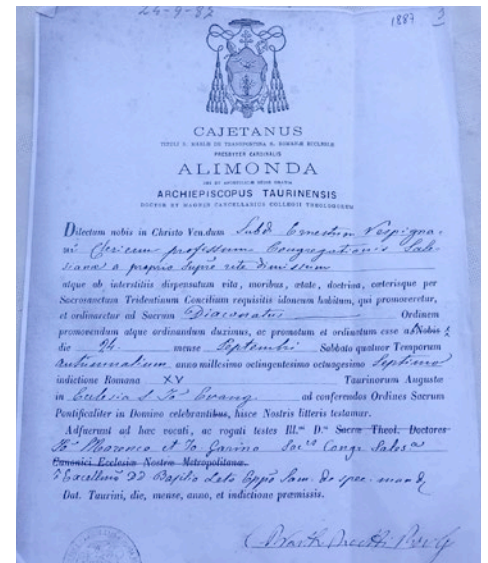 24-9-87
1887 3
CAJETANUS
TITULI S. MARIÆ DE TRANSPONTINA S. ROMANÆ ECCLESIÆ
PRESBITER CARDINALIS
ALIMONDA
DEI ET APOSTOLICÆ SEDIS GRATIA
ARCHIEPISCOPUS TAURINENSIS
DOCTOR ET MAGNUS CANCELLARIUS COLLEGII THEOLOGORUM
Dilectum nobis in Christo Ven.dum Subd Ernestum Vespigna-
ni Clericum professum Congregationis Sale-
sianæ a proprio Supre rite dimissum
atque ab interstitiis dispensatum vita, moribus, ætate, doctrina, cæterisque per
Sacrosanctum Tridentinum Concilium requisitis idoneum habitum, qui promoveretur,
et ordinaretur ad Sacrum Diaconatus Ordinem
promovendum atque ordinandum duximus, ac promotum et ordinatum esse a Nobis
die 24 mense Septembri Sabbato quatuor Temporum
Autumnalium, anno millesimo octingentesimo octuagesimo Septimo
indictione Romana XV Taurinorum Augustæ
in Ecclesia S. Jo Evang ad conferendos Ordines Sacrum
Pontificaliter in Domino celebrantibus, hisce Nostris litteris testamur.
Adfuerunt ad hæc vocati, ac rogati testes Ill.mi D.ni Sacræ Theol. Doctores
Jo Marenco et Jo Garino Sac.s Congr. Salesa
Canonici Ecclesiæ Nostræ Metropolitanæ.
Excellmo DD Basilio Leto Eppo Sam. de spec. mand
Dat. Taurini, die, mense, anno, et indictione præmissis.